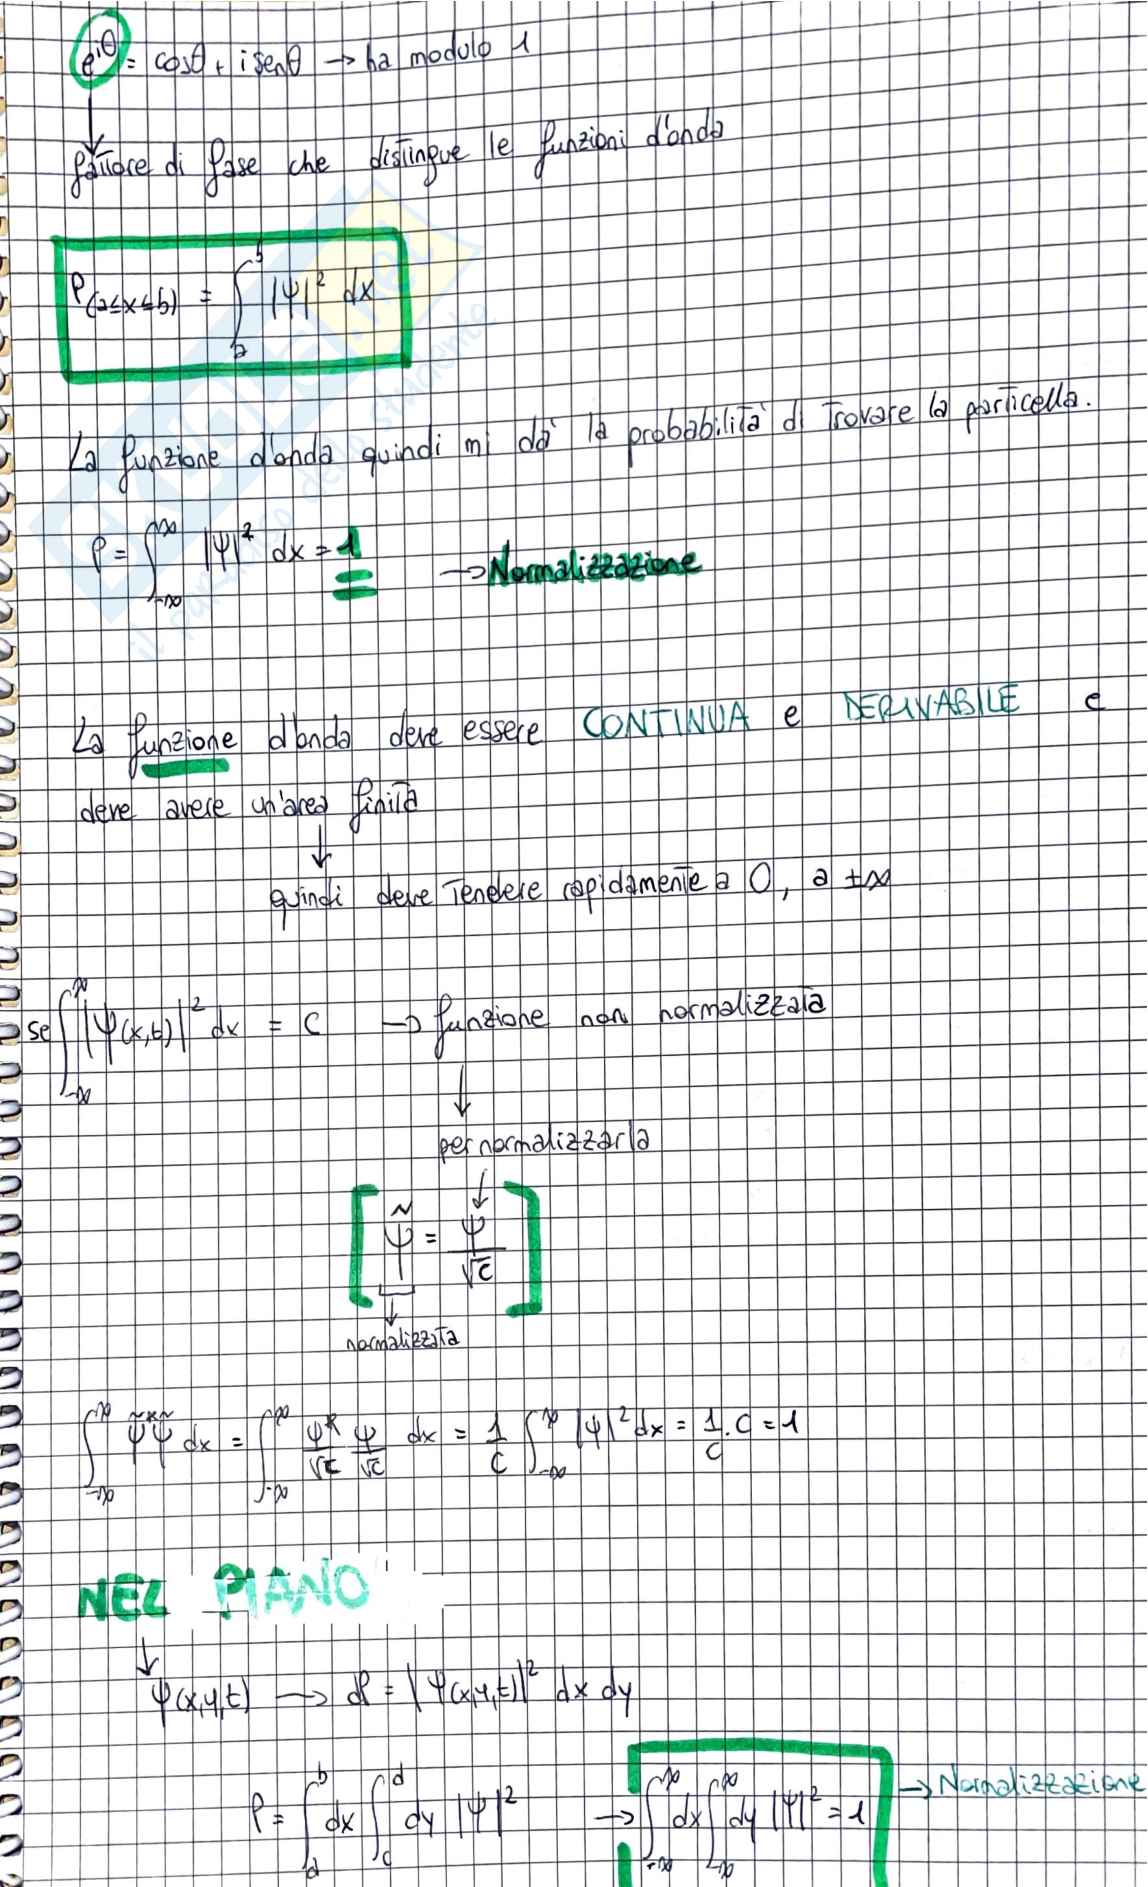 e^{iθ} = cosθ + i senθ → ha modulo 1
fattore di fase che distingue le funzioni d'onda
P(a≤x≤b) = ∫_a^b |Ψ|² dx
La funzione d'onda quindi mi dà la probabilità di trovare la particella.
P = ∫_{-∞}^{∞} |Ψ|² dx = 1 → Normalizzazione
La funzione d'onda deve essere CONTINUA e DERIVABILE e
deve avere un'area finita
↓
quindi deve tendere rapidamente a 0, a ±∞
se ∫_{-∞}^{∞} |Ψ(x,t)|² dx = C → funzione non normalizzata
↓
per normalizzarla
↓
[ Ψ̃ = Ψ/√C ]
↓
normalizzata
∫_{-∞}^{∞} Ψ̃*Ψ̃ dx = ∫_{-∞}^{∞} Ψ*/√C Ψ/√C dx = 1/C ∫_{-∞}^{∞} |Ψ|² dx = 1/C · C = 1
NEL PIANO
↓
Ψ(x,y,t) → dP = |Ψ(x,y,t)|² dx dy
P = ∫_a^b dx ∫_c^d dy |Ψ|² → ∫_{-∞}^{∞} dx ∫_{-∞}^{∞} dy |Ψ|² = 1 → Normalizzazione
il paradiso dello studente